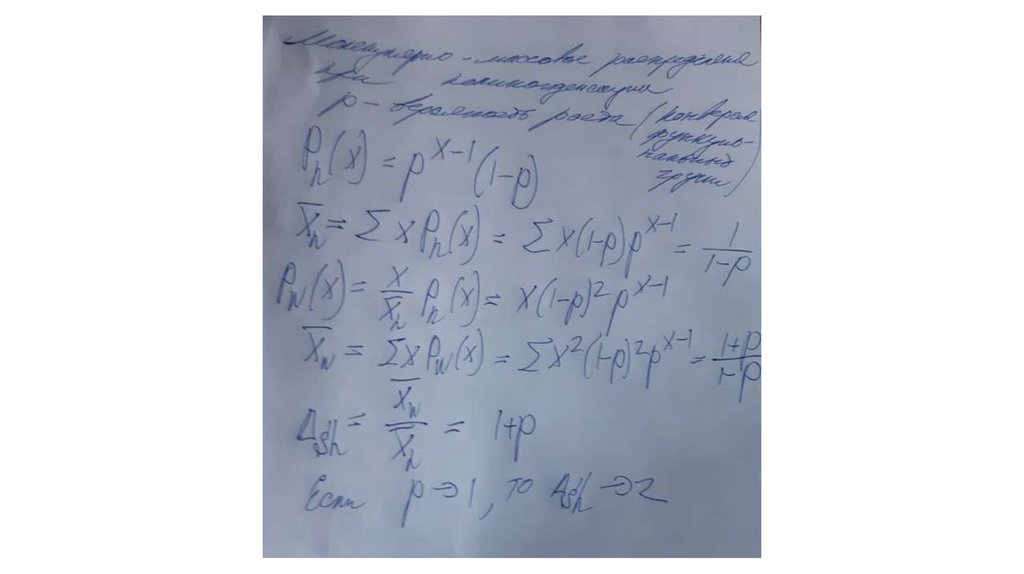 Молекулярно-массовое распределение
при поликонденсации
p – вероятность роста (конверсия
функцио-
нальных
групп)
Pₙ(x) = p^(x-1) (1-p)
X̄ₙ = Σ x Pₙ(x) = Σ x(1-p)p^(x-1) = 1/(1-p)
P_w(x) = x/X̄ₙ Pₙ(x) = x(1-p)² p^(x-1)
X̄_w = Σ x P_w(x) = Σ x² (1-p)² p^(x-1) = (1+p)/(1-p)
= X̄_w/X̄ₙ = 1+p
Если p → 1, то → 2